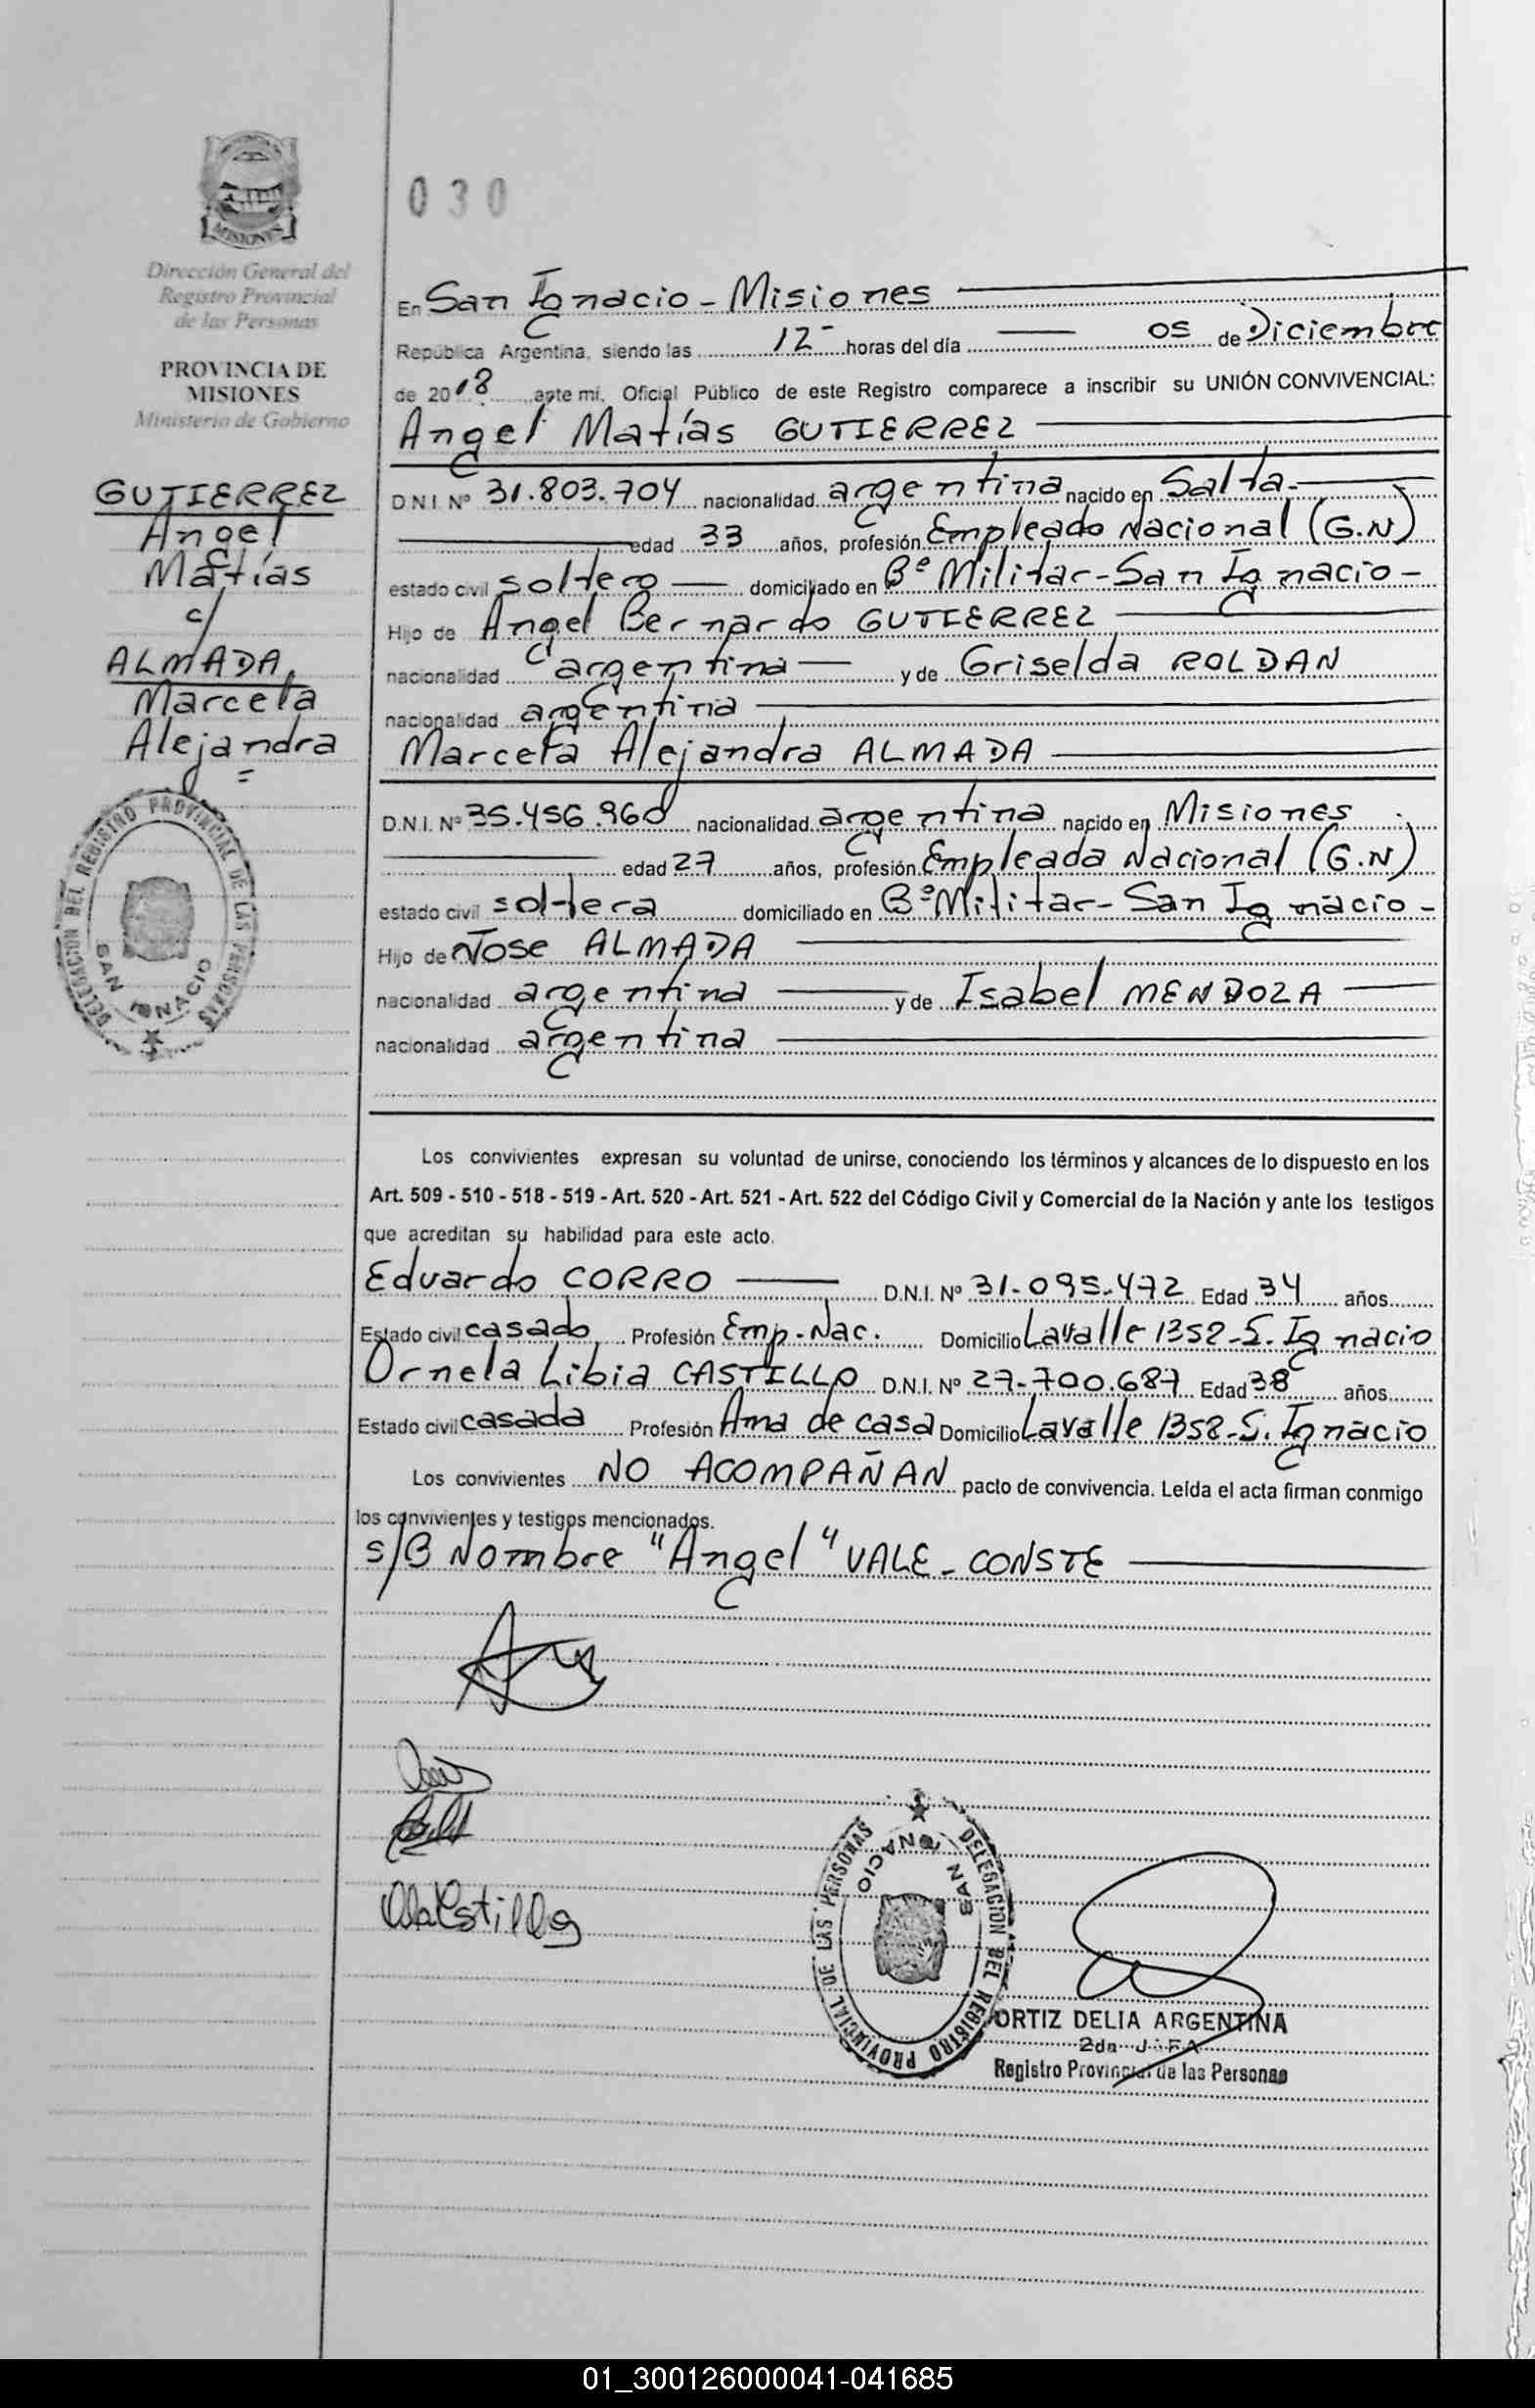 MISIONES
Dirección General del
Registro Provincial
de las Personas
PROVINCIA DE
MISIONES
Ministerio de Gobierno
GUTIERREZ
Angel
Matías
c/
ALMADA,
Marcela
Alejandra
DELEGACION DEL REGISTRO PROVINCIAL DE LAS PERSONAS
SAN IGNACIO
030
En San Ignacio - Misiones
República Argentina, siendo las 12- horas del día 05 de Diciembre
de 2018 ante mí, Oficial Público de este Registro comparece a inscribir su UNIÓN CONVIVENCIAL:
Angel Matías GUTIERREZ
D.N.I. Nº 31.803.704 nacionalidad argentina nacido en Salta.-
edad 33 años, profesión Empleado Nacional (G.N)
estado civil soltero domiciliado en Bº Militar-San Ignacio-
Hijo de Angel Bernardo GUTIERREZ
nacionalidad argentina y de Griselda ROLDAN
nacionalidad argentina
Marcela Alejandra ALMADA
D.N.I. Nº 35.456.960 nacionalidad argentina nacido en Misiones
edad 27 años, profesión Empleada Nacional (G.N)
estado civil soltera domiciliado en Bº Militar- San Ignacio-
Hijo de Jose ALMADA
nacionalidad argentina y de Isabel MENDOZA
nacionalidad argentina
Los convivientes expresan su voluntad de unirse, conociendo los términos y alcances de lo dispuesto en los
Art. 509 - 510 - 518 - 519 - Art. 520 - Art. 521 - Art. 522 del Código Civil y Comercial de la Nación y ante los testigos
que acreditan su habilidad para este acto.
Eduardo CORRO D.N.I. Nº 31.095.472 Edad 34 años
Estado civil casado Profesión Emp. Nac. Domicilio Lavalle 1352-S. Ignacio
Ornela Libia CASTILLO D.N.I. Nº 27.700.687 Edad 38 años
Estado civil casada Profesión Ama de casa Domicilio Lavalle 1352-S. Ignacio
Los convivientes NO ACOMPAÑAN pacto de convivencia. Leída el acta firman conmigo
los convivientes y testigos mencionados.
s/B Nombre "Angel" VALE - CONSTE
DELEGACION DEL REGISTRO PROVINCIAL DE LAS PERSONAS
SAN IGNACIO
ORTIZ DELIA ARGENTINA
2da JEFA
Registro Provincial de las Personas
01_300126000041-041685